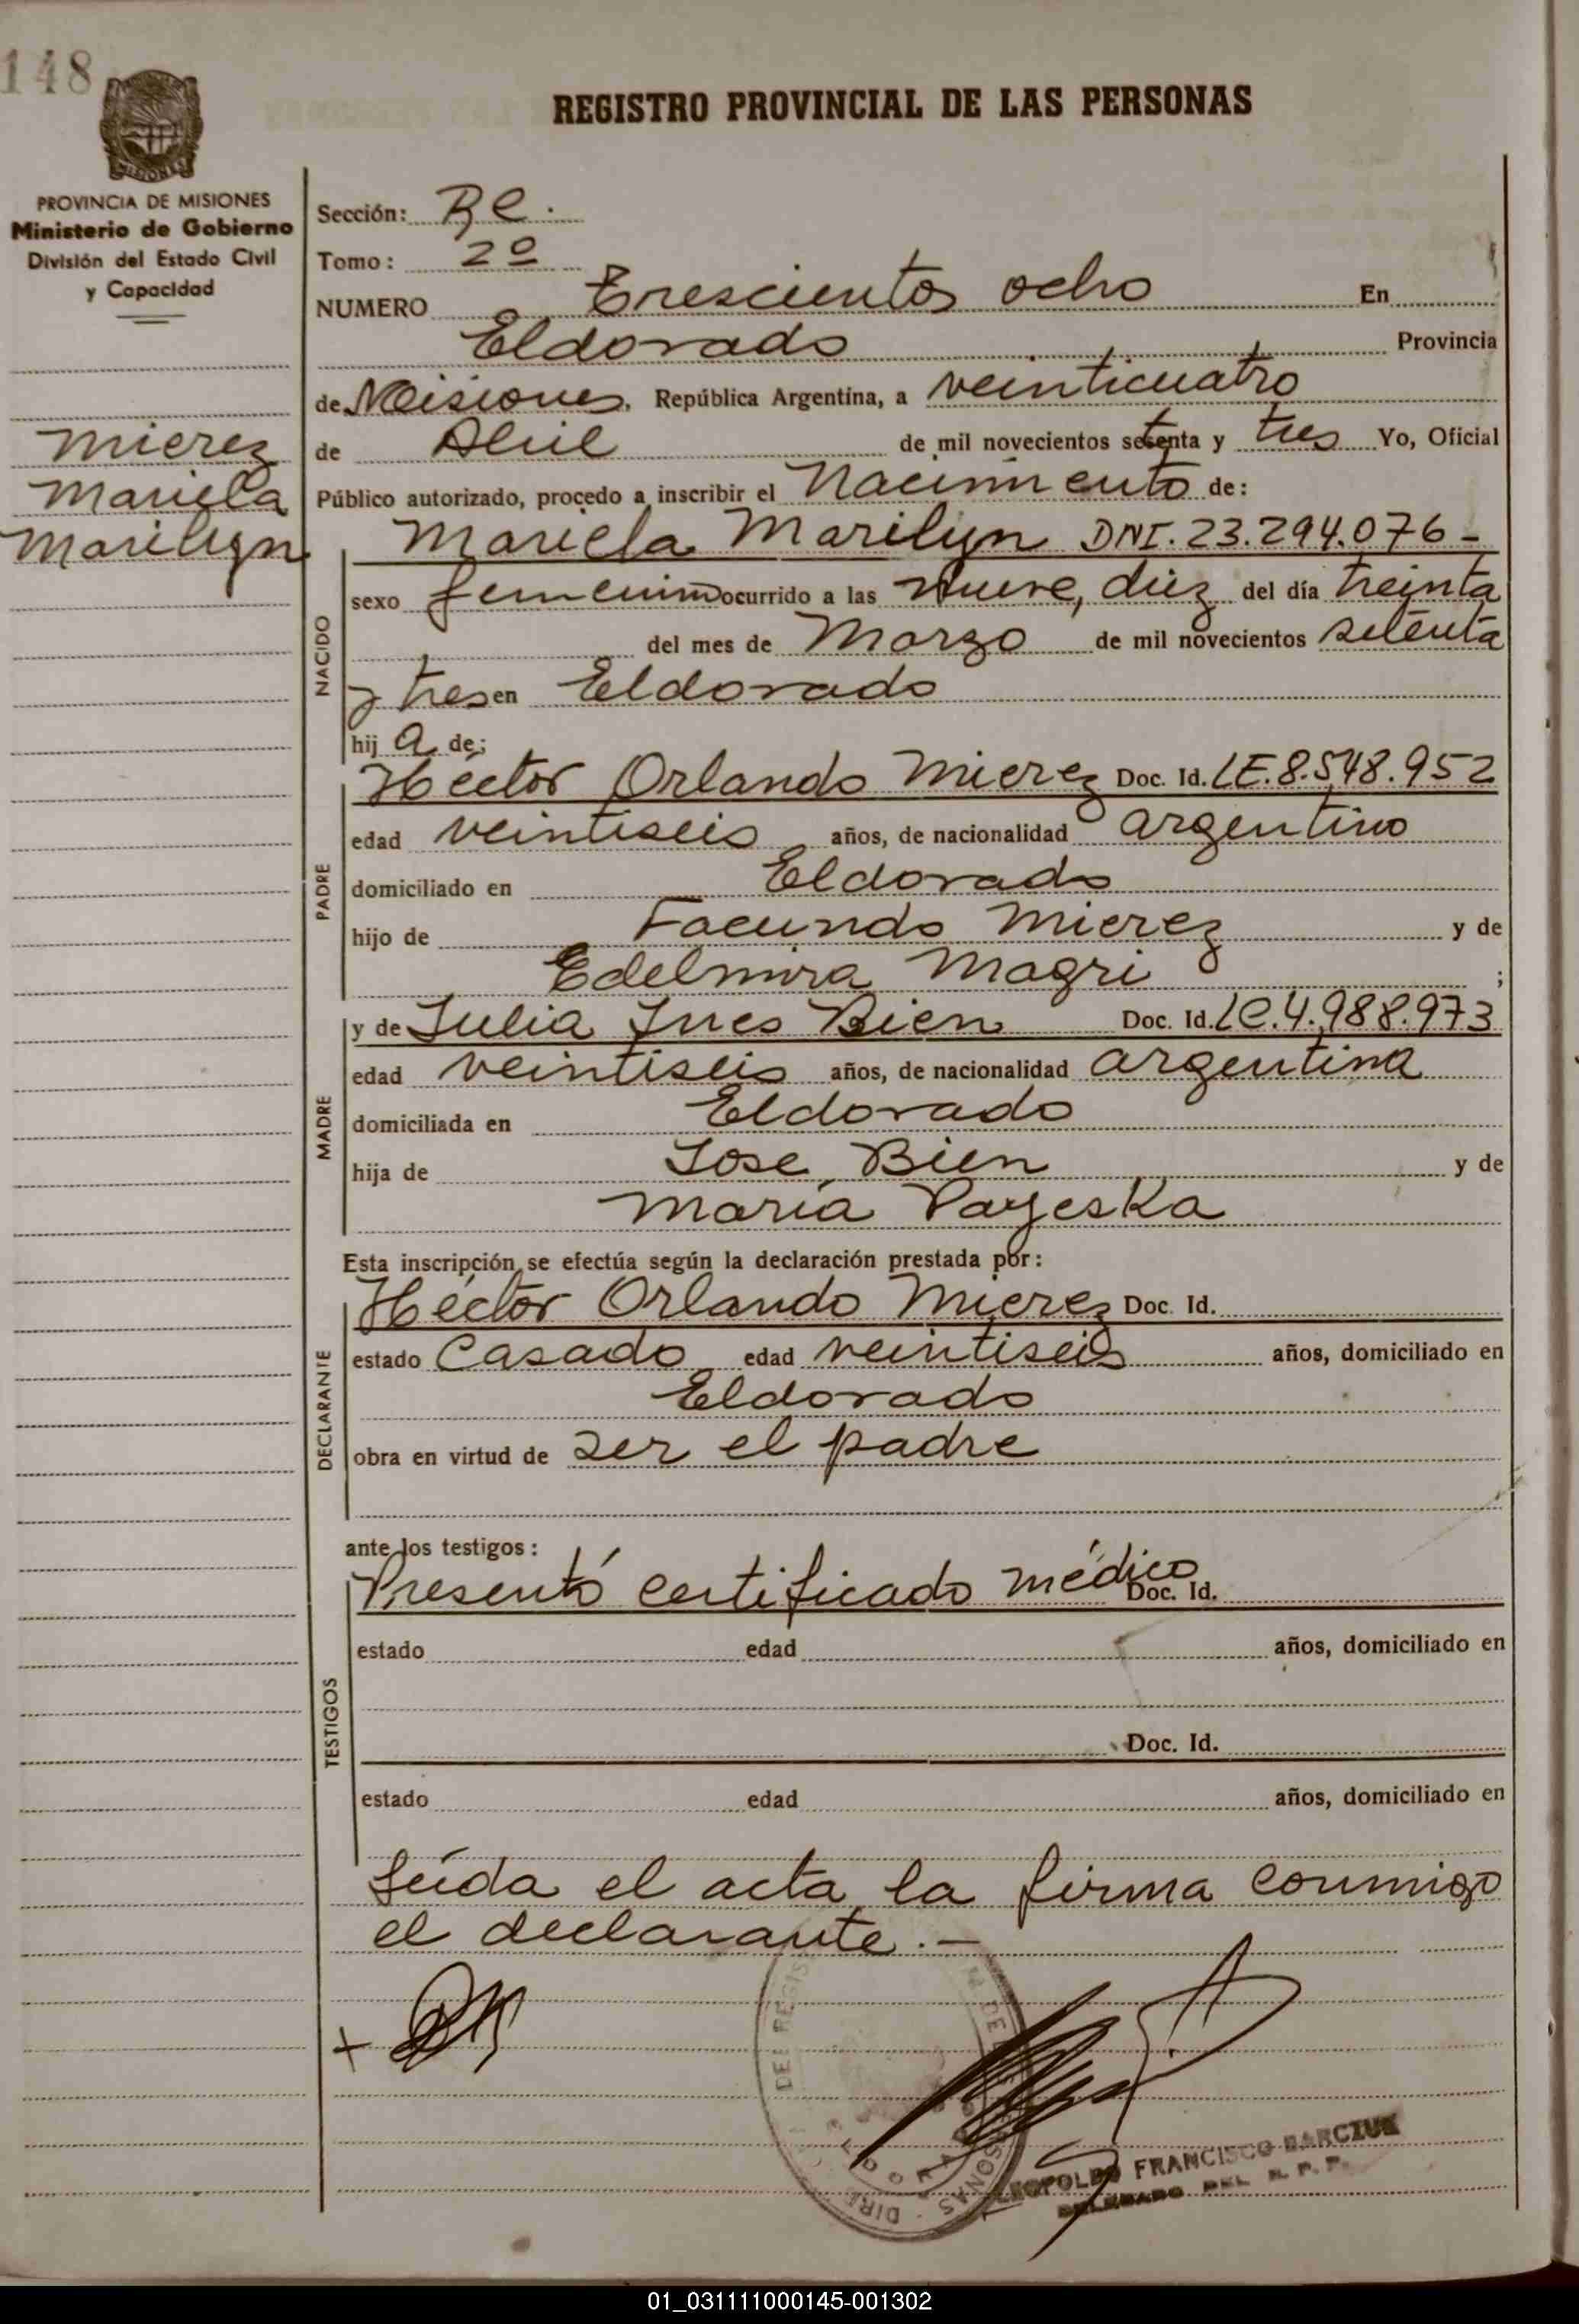 148
REGISTRO PROVINCIAL DE LAS PERSONAS
PROVINCIA DE MISIONES
Ministerio de Gobierno
División del Estado Civil
y Capacidad
Mierez
Mariela
Marilyn
Sección: Re.
Tomo: 2º
NUMERO Trescientos ocho En
Eldorado Provincia
de Misiones, República Argentina, a veinticuatro
de Abril de mil novecientos setenta y tres Yo, Oficial
Público autorizado, procedo a inscribir el Nacimiento de:
NACIDO
Mariela Marilyn DNI. 23.294.076 -
sexo femenino ocurrido a las Nueve, diez del día treinta
del mes de Marzo de mil novecientos setenta
y tres en Eldorado
hij a de:
PADRE
Héctor Orlando Mierez Doc. Id. LE. 8.548.952
edad veintiseis años, de nacionalidad argentino
domiciliado en Eldorado
hijo de Facundo Mierez y de
Edelmira Magri ;
MADRE
y de Julia Ines Bien Doc. Id. LC. 4.988.973
edad veintiseis años, de nacionalidad argentina
domiciliada en Eldorado
hija de Jose Bien y de
María Payeska
Esta inscripción se efectúa según la declaración prestada por:
DECLARANTE
Héctor Orlando Mierez Doc. Id.
estado Casado edad veintiseis años, domiciliado en
Eldorado
obra en virtud de ser el padre
ante los testigos:
TESTIGOS
Presentó certificado médico Doc. Id.
estado edad años, domiciliado en
Doc. Id.
estado edad años, domiciliado en
Leída el acta, la firma conmigo
el declarante.-
LEOPOLDO FRANCISCO BARCZUK
DELEGADO DEL R. P. P.
01_031111000145-001302